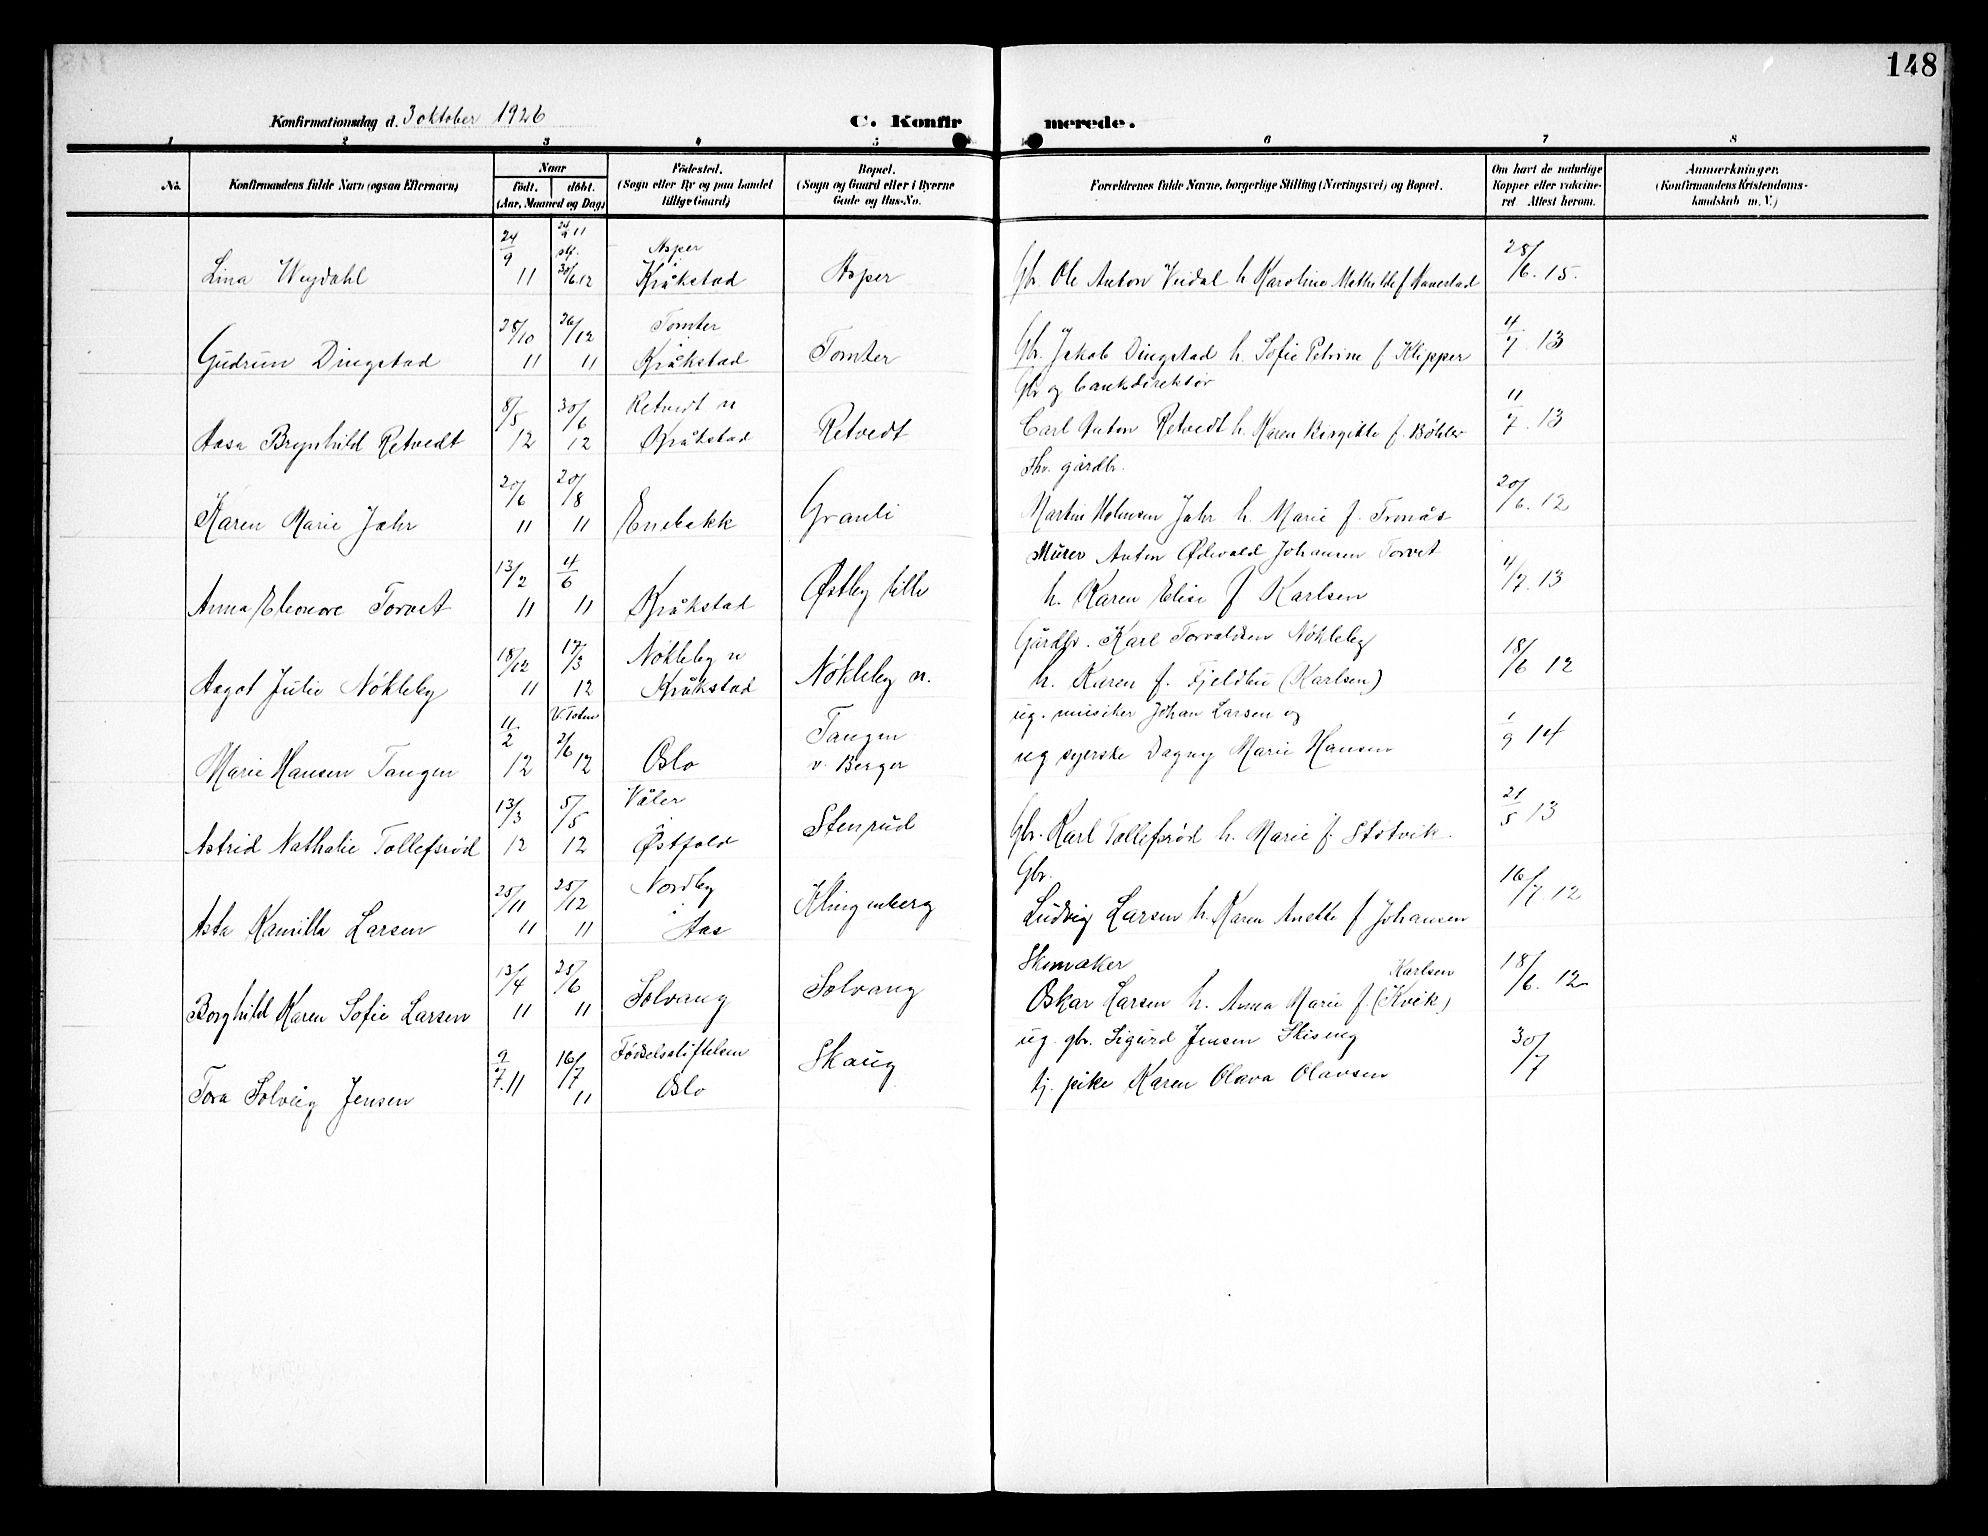 148
Konfirmationsdag d. 3 oktober 1926
C. Konfirmerede.
1 2 3 4 5 6 7 8
No.
Konfirmandens fulde Navn (ogsaa Efternavn)
Naar
født. døbt.
(Aar, Maaned og Dag)
Fødested.
(Sogn eller By og paa Landet
tillige Gaard)
Bopæl.
(Sogn og Gaard eller i Byerne
Gade og Hus-No.
Forældrenes fulde Navne, borgerlige Stilling (Næringsvei) og Bopæl.
Om havt de naturlige
Kopper eller vakcine-
ret Attest herom.
Anmærkninger.
(Konfirmandens Kristendoms-
kundskab m. V.)
Lina Weydahl 24/9 11 24/9 11 30/6 12 Asper Kråkstad Asper Gbr. Ole Anton Veidal h. Karoline Mathilde f. 28/6. 15.
Gudrun Dingstad 28/10 11 26/12 11 Tomter Kråkstad Tomter Gbr. Jakob Dingstad h. Sofie Petrine f. Klipper 4/7. 13
Aasa Brynhild Retvedt 8/5 12 30/6 12 Retvedt n Kråkstad Retvedt Gbr og bankdirektør
Carl Anton Retvedt h. Karen Birgitte f. Bøhler 11/7. 13
Karen Marie Jahr 20/6 11 20/8 11 Enebakk Granli Fhv. gårdbr.
Martin Holmsen Jahr h. Marie f. Tronås 20/6. 12
Anna Eleonore Torvet 13/2 11 4/6 11 Kråkstad Østby lille Murer Anton Ødevald Johansen Torvet
h. Karen Elise f Karlsen 4/7. 13
Aagot Julie Nøkleby 18/12 11 17/3 12 Nøkleby n Kråkstad Nøkleby n. Gårdbr. Karl Torvaldsen Nøkleby
h. Karen f. Fjeldbu (Karlsen) 18/6 12
Marie Hansen Tangen 11/2 12 V. Toten 2/6 12 Oslo Tangen v. Berger ug. musiker Johan Larsen og
ug syerske Dagny Marie Hansen 1/9 14
Astrid Nathalie Tollefsrød 13/3 12 5/5 12 Våler i Østfold Stenrud Gbr. Karl Tollefsrød h. Marie f. Støtvik. 21/5 13
Asta Kamilla Larsen 25/11 11 25/12 11 Nordby i Aas Klingenberg Gbr.
Ludvig Larsen h. Karen Anette f Johansen 16/7 12
Borghild Karen Sofie Larsen 13/4 11 25/6 11 Solvang Solvang Skomaker
Oskar Larsen h. Anna Marie f. Karlsen (Kvik) 18/6. 12
Tora Solveig Jensen 9/7. 11 16/7 11 Fødselsstiftelsen Oslo Skaug ug. gbr. Sigurd Jensen
tj. pike Karen Olava Olavsen 30/7